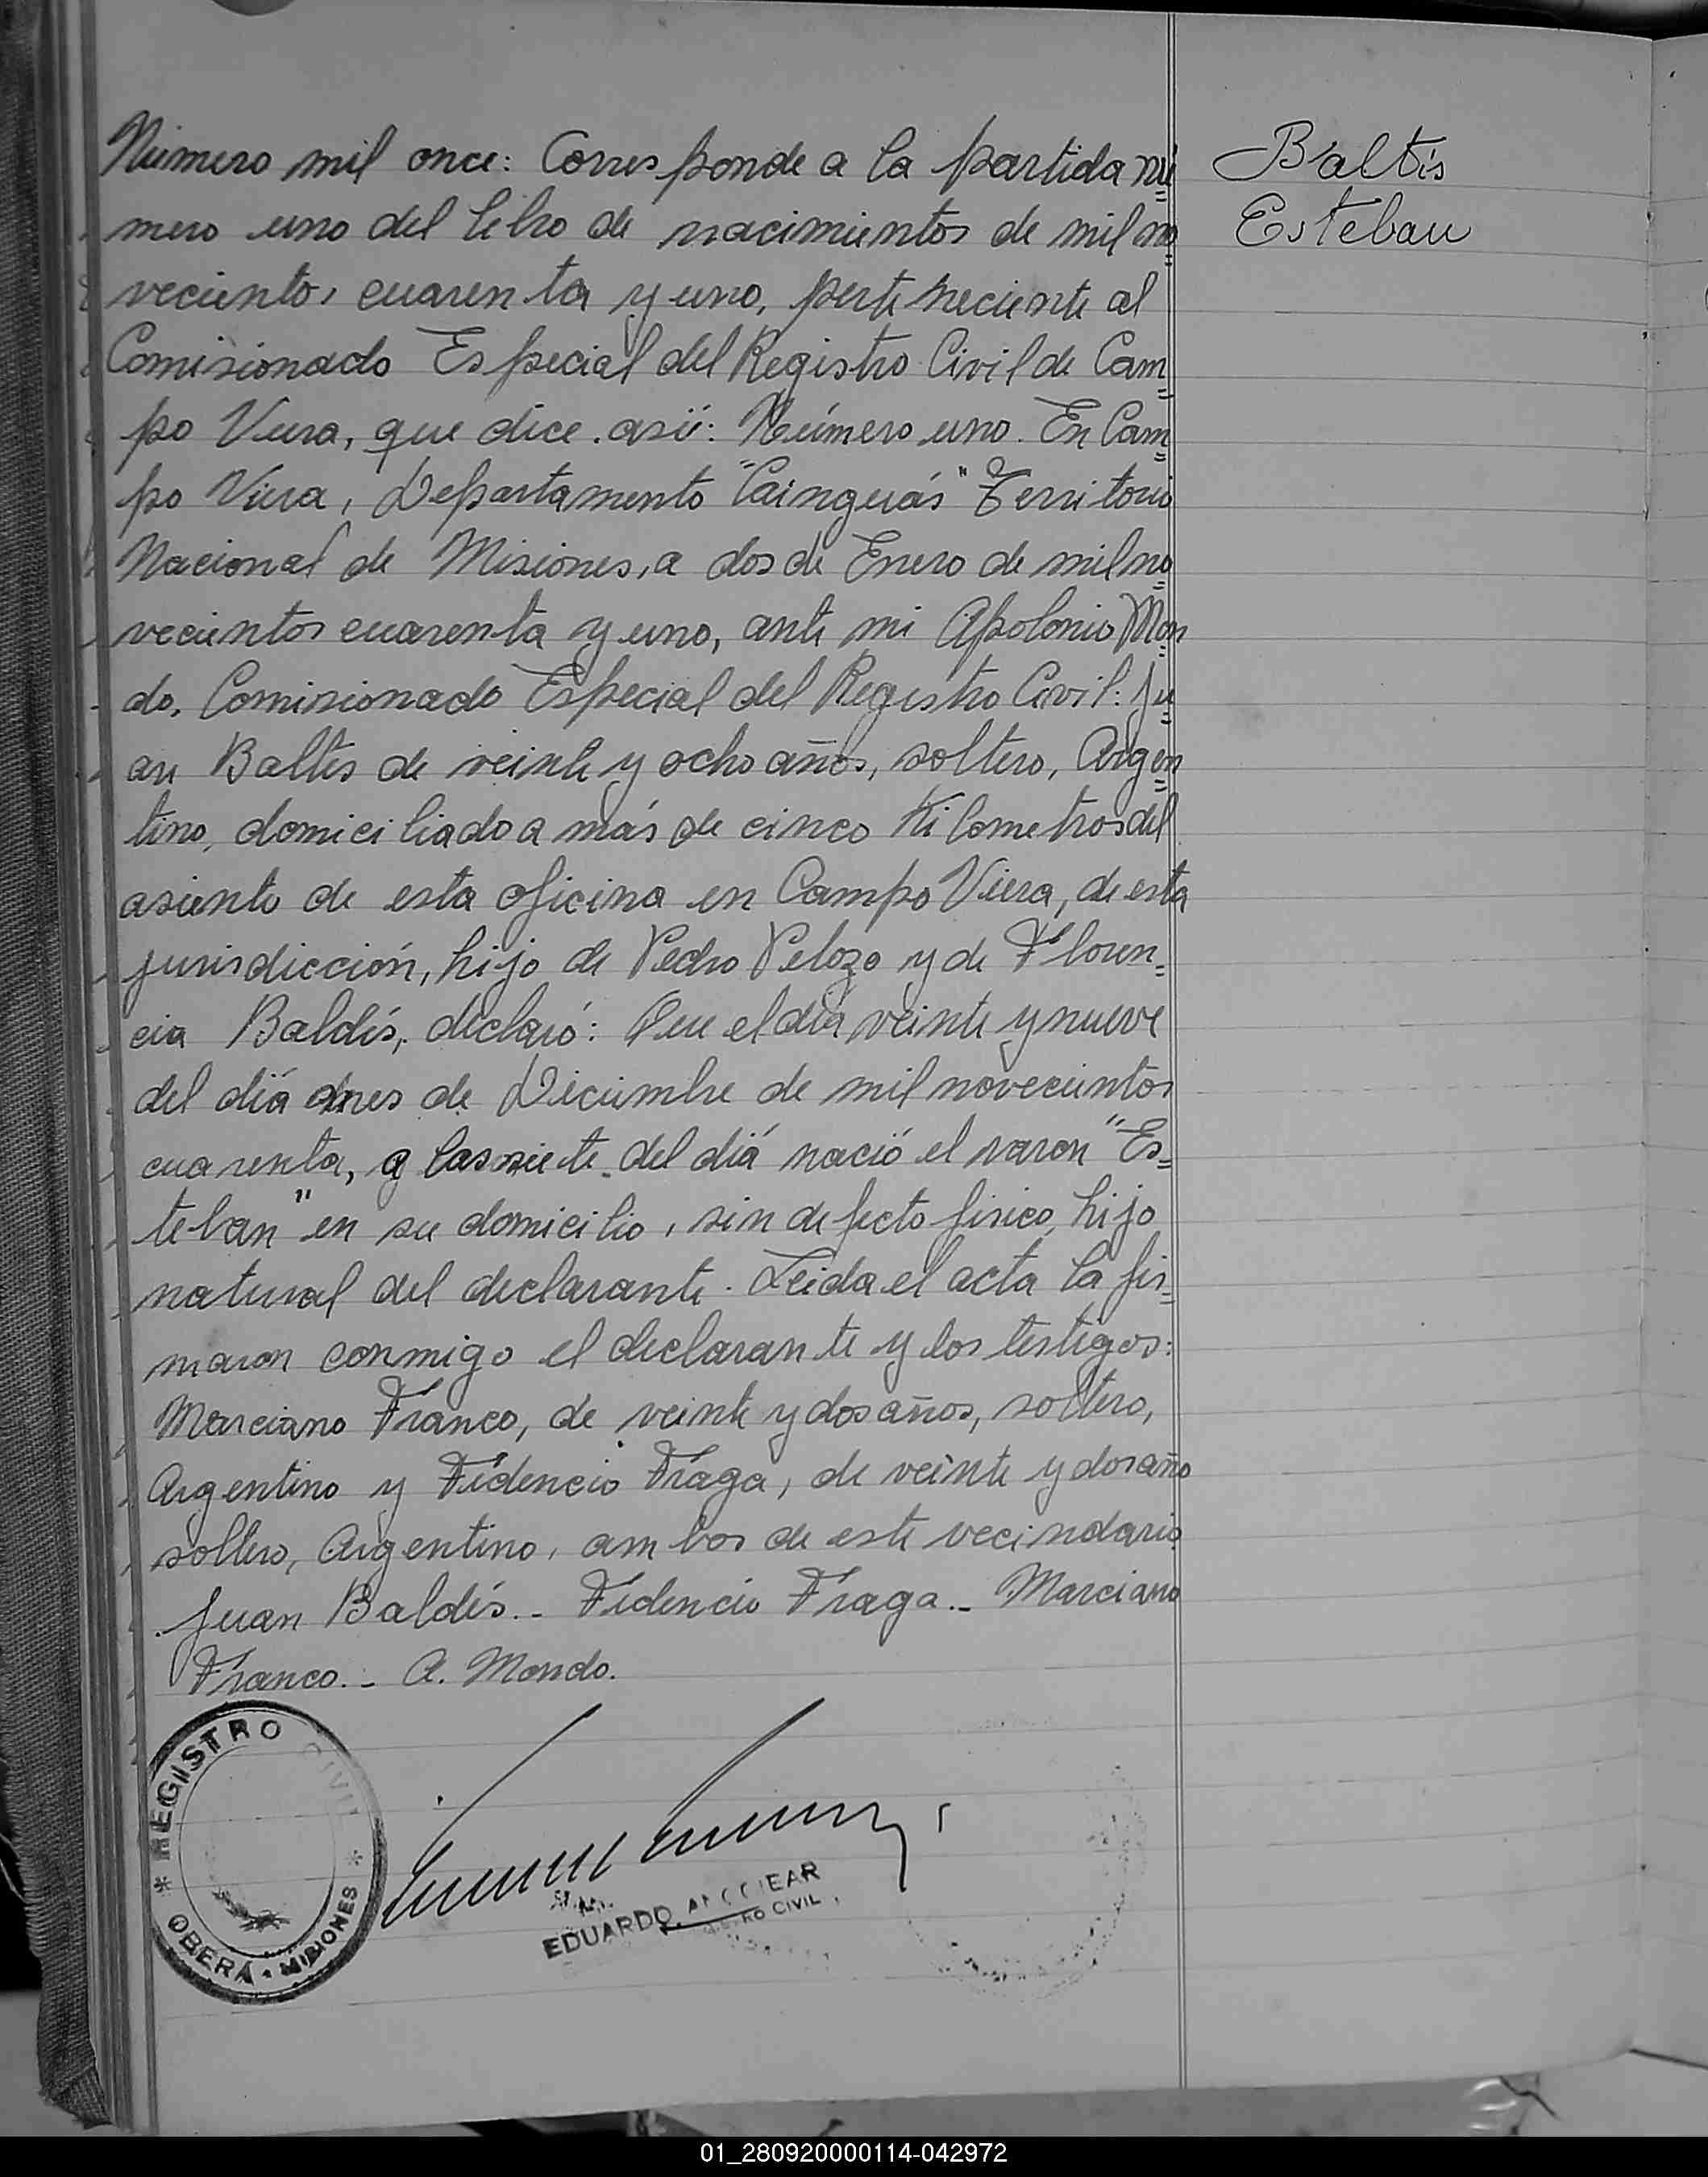 Número mil once: Corresponde a la partida nú
mero uno del libro de nacimientos de mil no
vecientos cuarenta y uno, perteneciente al
Comisionado Especial del Registro Civil de Cam
po Viera, que dice así: Número uno. En Cam
po Viera, Departamento "Cainguás" Territorio
Nacional de Misiones, a dos de Enero de mil no
vecientos cuarenta y uno, ante mi Apolonio Mon
do, Comisionado Especial del Registro Civil: Ju
an Baltés de veinte y ocho años, soltero, Argen
tino, domiciliado a más de cinco Kilometros del
asiento de esta oficina en Campo Viera, de esta
jurisdicción, hijo de Pedro Pelozo y de Floren=
cia Baldés, declaró: Que el día veinte y nueve
del día mes de Diciembre de mil novecientos
cuarenta, a las siete del día nació el varon "Es=
teban" en su domicilio, sin defecto fisico, hijo
natural del declarante. Leida el acta la fir=
maron conmigo el declarante y los testigos:
Marciano Franco, de veinte y dos años, soltero,
Argentino y Fidencio Fraga, de veinte y dos año
soltero, Argentino, ambos de este vecindario
Juan Baldés.- Fidencio Fraga.- Marciano
Franco.- A. Mondo.
Baltés
Esteban
REGISTRO CIVIL
OBERÁ - MISIONES
EDUARDO
CIVIL
01_280920000114-042972